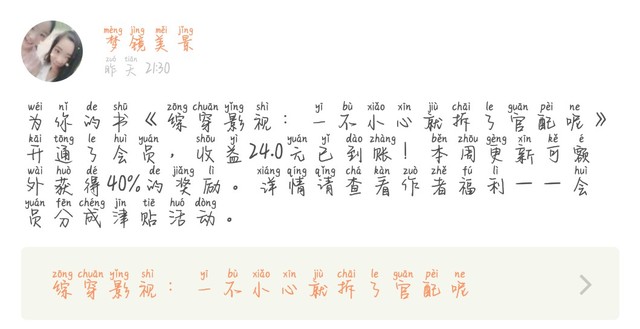 mèng jìng měi jǐng
梦镜美景
zuó tiān
昨天 21:30
wéi nǐ de shū zōng chuān yǐng shì yī bù xiǎo xīn jiù chāi le guān pèi ne
为你的书《综穿影视：一不小心就拆了官配呢》
kāi tōng le huì yuán shōu yì yuán yǐ dào zhàng běn zhōu gèng xīn kě é
开通了会员，收益24.0元已到账！本周更新可额
wài huò dé de jiǎng lì xiáng qíng qǐng chá kàn zuò zhě fú lì huì
外获得40%的奖励。详情请查看作者福利——会
yuán fēn chéng jīn tiē huó dòng
员分成津贴活动。
zōng chuān yǐng shì yī bù xiǎo xīn jiù chāi le guān pèi ne
综穿影视：一不小心就拆了官配呢